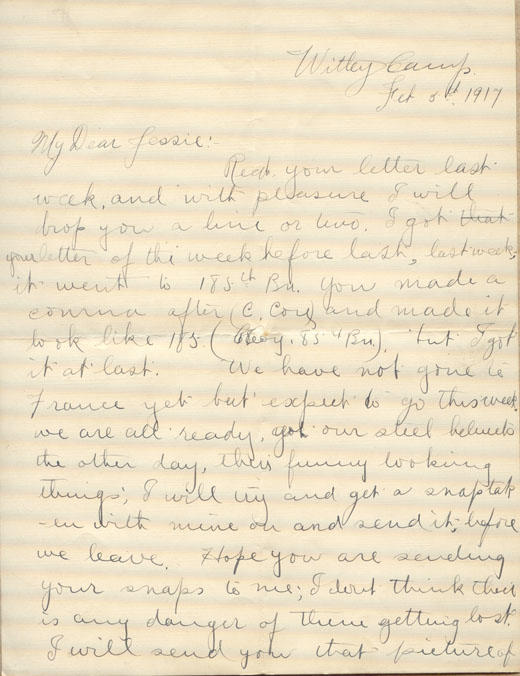 Witley Camp.
Feb 5th 1917
My Dear Jessie:-
Recd. your letter last
week, and with pleasure I will
drop you a line or two. I got that
your letter of the week before last, last week,
it went to 185th Bn. You made a
comma after (C. Coy) and made it
look like 185 ( Coy. 85th Bn), but I got
it at last. We have not gone to
France yet but expect to go this week.
we are all ready, got our steel helmets
the other day, their funny looking
things; I will try and get a snap tak
-en with mine on and send it, before
we leave. Hope you are sending
your snaps to me; I dont think their
is any danger of them getting lost.
I will send you that picture of